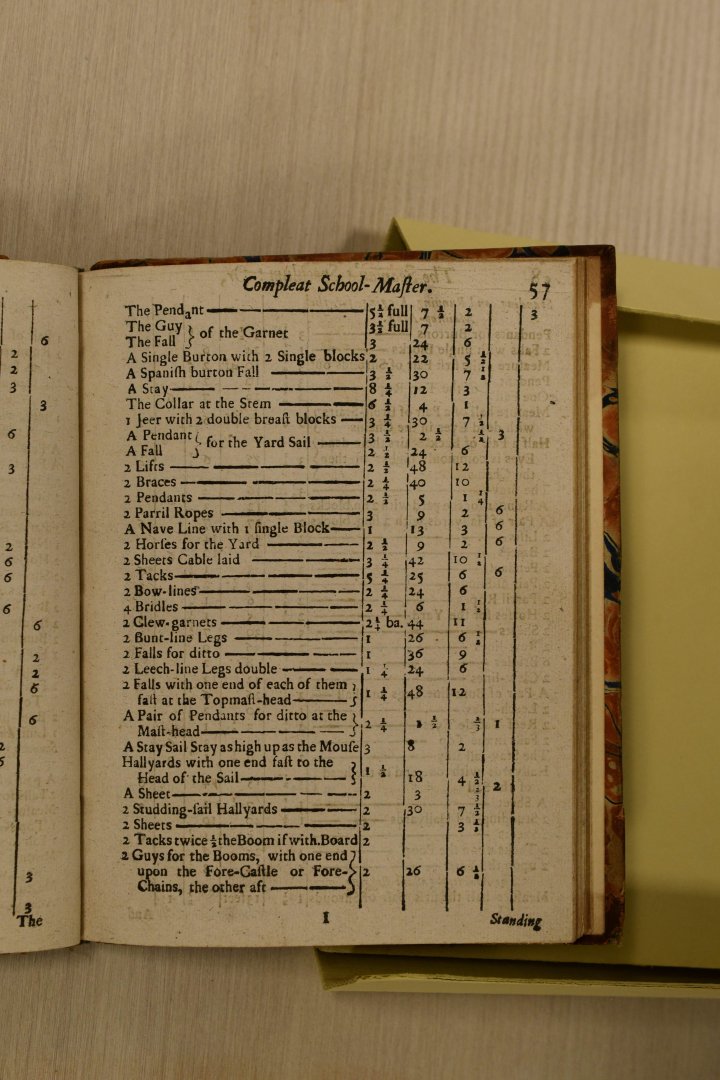 6
2
2
3
3
6
3
2
6
6
6
6
2
2
6
6
2
5
3
3
The
Compleat School-Maſter. 57
The Pendant 5 1/2 full 7 1/2 2 3
The Guy } of the Garnet 3 1/2 full 7 2
The Fall 3 24 6
A Single Burton with 2 Single blocks 2 22 5 1/2
A Spaniſh burton Fall 3 1/2 30 7 1/2
A Stay 8 1/4 12 3
The Collar at the Stem 6 1/2 4 1
1 Jeer with 2 double breaſt blocks 3 1/4 30 7 1/2
A Pendant } for the Yard Sail 3 1/2 2 1/2 1/2 3
A Fall 2 1/2 24 6
2 Lifts 2 1/2 48 12
2 Braces 2 1/4 40 10
2 Pendants 2 1/2 5 1 1/4
2 Parril Ropes 3 9 2 6
A Nave Line with 1 ſingle Block 1 13 3 6
2 Horſes for the Yard 2 1/2 9 2 6
2 Sheets Cable laid 3 1/4 42 10 1/2
2 Tacks 5 1/4 25 6 6
2 Bow-lines 2 1/4 24 6
4 Bridles 2 1/4 6 1 1/2
2 Clew-garnets 2 1/4 ba. 44 11
2 Bunt-line Legs 1 26 6 1/2
2 Falls for ditto 1 36 9
2 Leech-line Legs double 1 1/4 24 6
2 Falls with one end of each of them
faſt at the Topmaſt-head 1 1/4 48 12
A Pair of Pendants for ditto at the
Maſt-head 2 1/4 1 1/2 1/2 1
A Stay Sail Stay as high up as the Mouſe 3 8 2
Hallyards with one end faſt to the
Head of the Sail 1 1/2 18 4 1/2 2
A Sheet 2 3
2 Studding-ſail Hallyards 2 30 7 1/2
2 Sheets 2 3 1/2
2 Tacks twice 1/2 the Boom if with.Board 2
2 Guys for the Booms, with one end
upon the Fore-Caſtle or Fore- 2 26 6 1/2
Chains, the other aft
I Standing